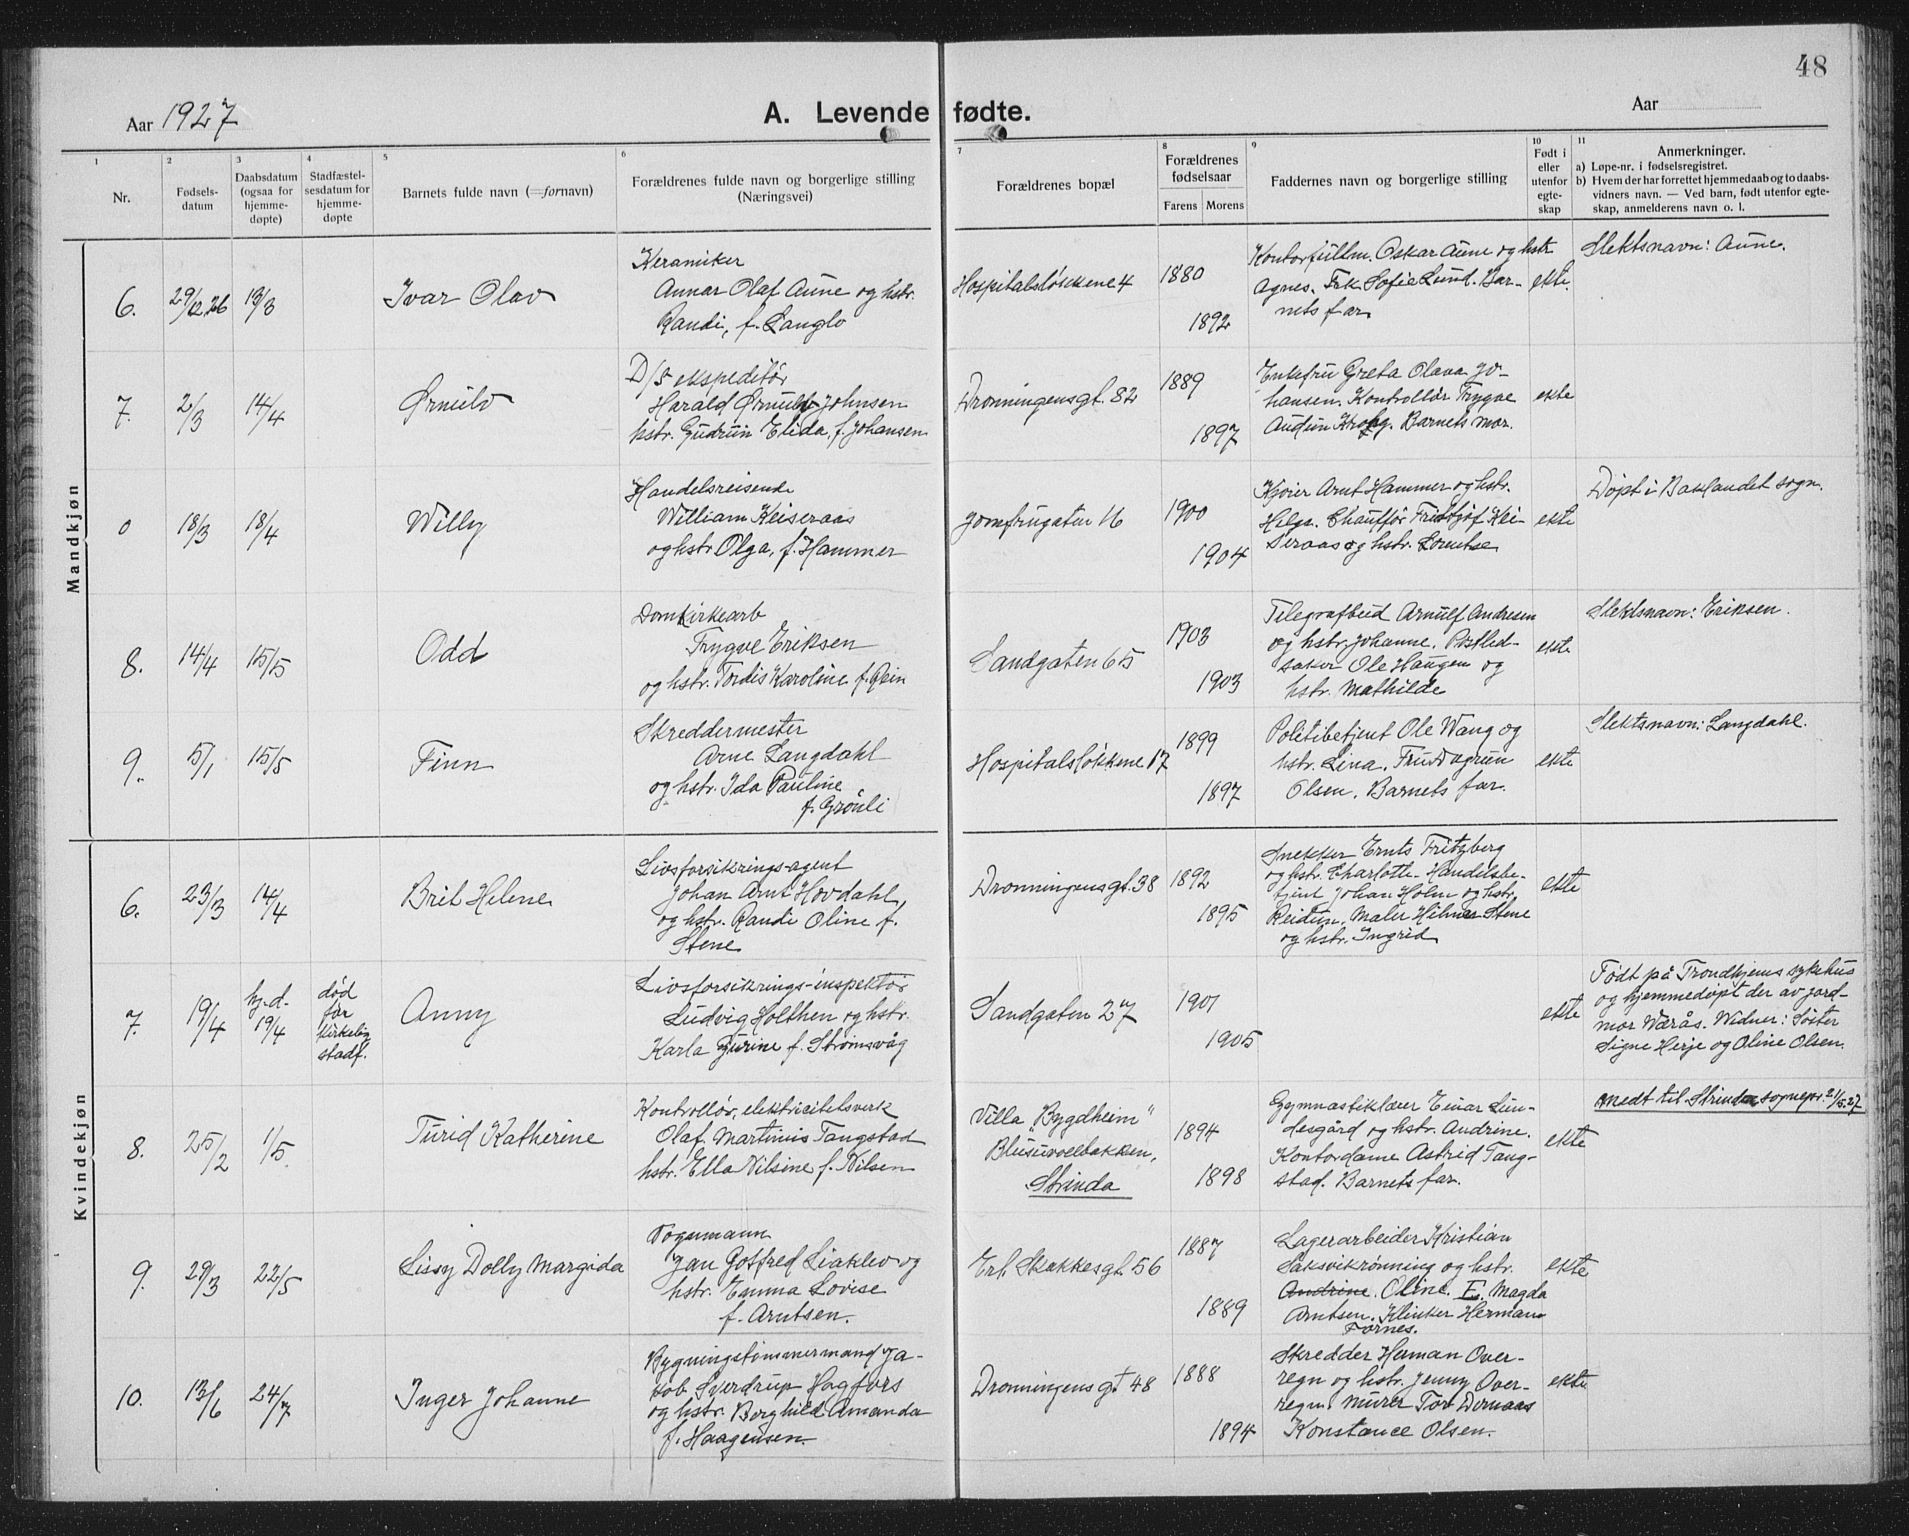 48
Aar 1927
A. Levende fødte.
Aar
1 2 3 4 5 6 7 8 9 10 11
Nr.
Fødsels-
datum
Daabsdatum
(ogsaa for
hjemme-
døpte)
Stadfæstel-
sesdatum for
hjemme-
døpte
Barnets fulde navn (=fornavn)
Forældrenes fulde navn og borgerlige stilling
(Næringsvei)
Forældrenes bopæl
Forældrenes
fødselsaar
Farens Morens
Faddernes navn og borgerlige stilling
Født i
eller
utenfor
egte-
skap
Anmerkninger.
a) Løpe-nr. i fødselsregistret.
b) Hvem der har forrettet hjemmedaab og to daabs-
vidners navn. — Ved barn, født utenfor egte-
skap, anmelderens navn o. l.
Mandkjøn
6. 29/12.26 13/3
Ivar Olav
Keramiker
Annar Olaf Aune og hstr.
Randi, f. Langlo
Hospitalsløkkene 4
1880
1892
Kontorfullm. Oskar Aune og hstr
Agnes. Frk Sofie Lund. Bar-
nets far
ekte.
Slektsnavn: Aune.
7. 2/3 14/4
Ørnulv
D/S ekspeditør
Harald Ørnulv Johnsen
hstr. Gudrun Elida, f. Johansen
Dronningensgt. 82
1889
1897
Enkefru Greta Olava Jo-
hansen. Kontrollør Trygve
Audun Krog. Barnets mor.
ekte
0 18/3 18/4
Willy
Handelsreisende
William Keiseraas
og hstr Olga, f. Hammer
Jomfrugaten 16
1900
1904
Kjøier Arnt Hammer og hstr.
Helga. Chauffør Fritjof Kei-
seraas og hstr. Lorentse
ekte
Døpt i Baklandet sogn.
8. 14/4 15/5
Odd
Domkirkearb
Trygve Eriksen
og hstr. Tordis Karoline f. Rein
Sandgaten 65
1903
1903
Telegrafbud Arnulf Andresen
og hstr. Johanne. Postled-
saker Ole Haugen og
hstr. Mathilde
ekte
Slektsnavn: Eriksen.
9. 5/1 15/5
Finn
Skreddermester
Arne Langdahl
og hstr. Ida Pauline
f. Grønli
Hospitalsløkkene 17
1899
1897
Politibetjent Ole Wang og
hstr. Lina. Fru Dagrun
Olsen. Barnets far.
ekte
Slektsnavn: Langdahl.
Kvindekjøn
6. 23/3 14/4
Brit Helene
Livsforsikrings-agent
Johan Arnt Hovdahl,
og hstr. Randi Oline f.
Stene
Dronningensgt. 38
1892
1895
Snekker Ernts Fritzberg
og hstr. Charlotte. Handelsbe-
tjent Johan Holm og hstr.
Reidun. Maler Hilmar Stene
og hstr. Ingrid
ekte
7. 19/4
hj-d.
19/4
død
før
kirkelig
stadf.
Anny
Livsforsikrings-inspektør
Ludvig Holthen og hstr.
Karla Gurine f. Strømsvåg
Sandgaten 27
1901
1905
ekte
Født på Trondhjems sykehus
og hjemmedøpt der av jord-
mor Wærås. Widner: Søster
Signe Herje og Oline Olsen.
8. 25/2 1/5
Turid Katherine
Kontrollør, elektricitetsverk
Olaf Martinus Tangstad
hstr. Ella Nilsine f. Nilsen
Villa "Bygdheim"
Blusuvoldbakken,
Strinda
1894
1898
Gymnastiklærer Einar Lun-
desgård og hstr. Andrine.
Kontordame Astrid Tang-
stad. Barnets far.
ekte
medt til Strinda sognepr. 21/5.27
9. 29/3 22/5
Lissy Dolly Margida
Vognmann
Jan Gotfred Liaklev og
hstr. Emma Lovise
f. Arntsen.
Erl. Skakkesgt. 56
1887
1889
Lagerarbeider Kristian
Saksvikrønning og hstr.
Andrine. Oline. E. Magda
Arntsen. Klinker Herman
Fornes.
ekte
10. 13/6 24/7
Inger Johanne
Bygningstømmermand Ja-
kob Sverdrup Hagfors
og hstr. Borghild Amanda
f. Haagensen.
Dronningensgt 48
1888
1894
Skredder Herman Over-
regn og hstr. Jenny Over-
regn. Murer Tor Dernaas
Konstance Olsen.
ekte